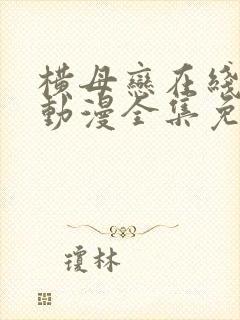 横母戀在綫
動漫全集免
瓊林